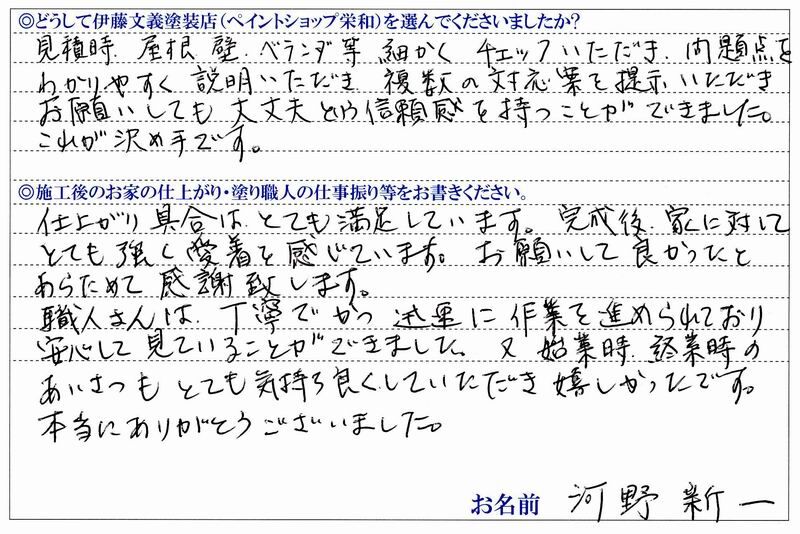 ◎どうして伊藤文義塗装店（ペイントショップ栄和）を選んでくださいましたか？
見積時、屋根、壁、ベランダ等 細かく チェックいただき、問題点を
わかりやすく 説明いただき、複数の対応案を提示いただき
お願いしても大丈夫という信頼感を持つことができました。
これが決め手です。
◎施工後のお家の仕上がり・塗り職人の仕事振り等をお書きください。
仕上がり具合はとても満足しています。完成後、家に対して
とても強く愛着を感じています。お願いして良かったと
あらためて感謝致します。
職人さんは、丁寧でかつ迅速に作業を進められており
安心して見ていることができました。又、始業時、終業時の
あいさつもとても気持ち良くしていただき嬉しかったです。
本当にありがとうございました。
お名前 河野 新一